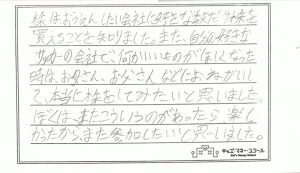 株はおうえんしたい会社に好きな数だけ株を
買えることを知りました。また、自分の好きな
サッカーの会社で、何かいいものがほしくなった
時は、お母さん、お父さんなどにおねがいし
て、本当に株をしてみたいと思いました。
ぼくは、またこういうのがあったら楽し
かったから、また参加したいと思いました。
キッズ・マネー・スクール
Kid's Money School